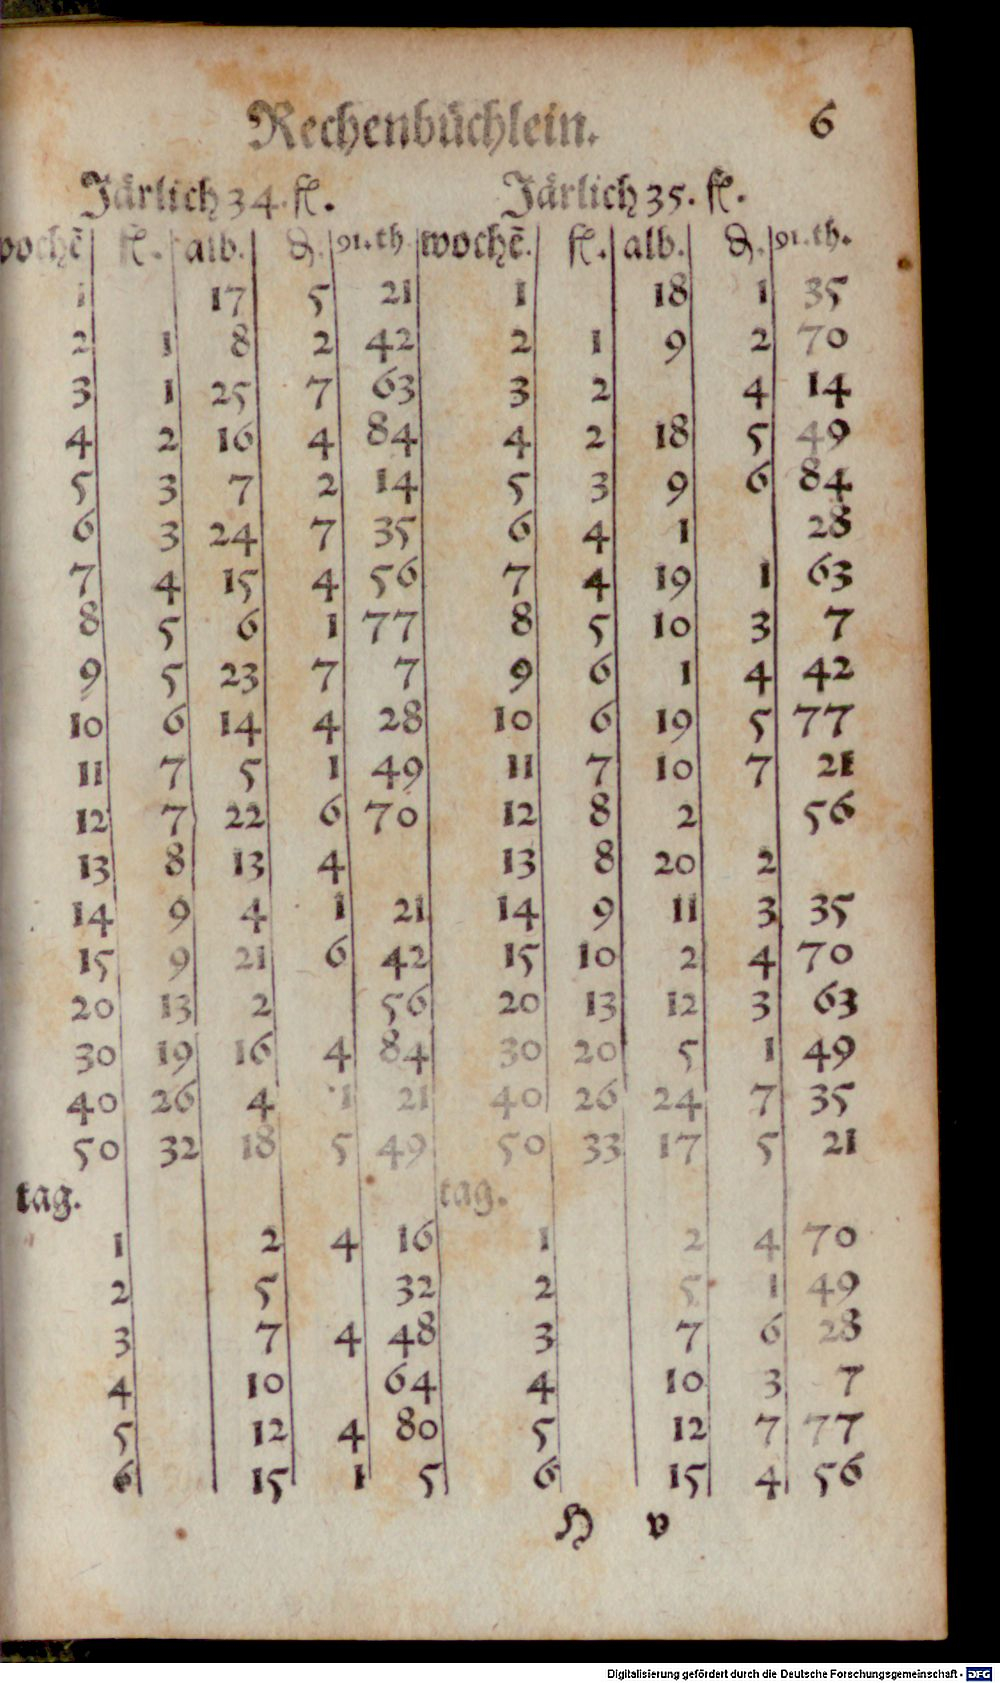 Rechenbüchlein. 6
Järlich 34. fl. Järlich 35. fl.
wochẽ fl. alb. ₰. 91.th. wochẽ. fl. alb. ₰. 91.th.
1 17 5 21 1 18 1 35
2 1 8 2 42 2 1 9 2 70
3 1 25 7 63 3 2 4 14
4 2 16 4 84 4 2 18 5 49
5 3 7 2 14 5 3 9 6 84
6 3 24 7 35 6 4 1 28
7 4 15 4 56 7 4 19 1 63
8 5 6 1 77 8 5 10 3 7
9 5 23 7 7 9 6 1 4 42
10 6 14 4 28 10 6 19 5 77
11 7 5 1 49 11 7 10 7 21
12 7 22 6 70 12 8 2 56
13 8 13 4 13 8 20 2
14 9 4 1 21 14 9 11 3 35
15 9 21 6 42 15 10 2 4 70
20 13 2 56 20 13 12 3 63
30 19 16 4 84 30 20 5 1 49
40 26 4 1 21 40 26 24 7 35
50 32 18 5 49 50 33 17 5 21
tag. tag.
1 2 4 16 1 2 4 70
2 5 32 2 5 1 49
3 7 4 48 3 7 6 28
4 10 64 4 10 3 7
5 12 4 80 5 12 7 77
6 15 1 5 6 15 4 56
H v
Digitalisierung gefördert durch die Deutsche Forschungsgemeinschaft - DFG